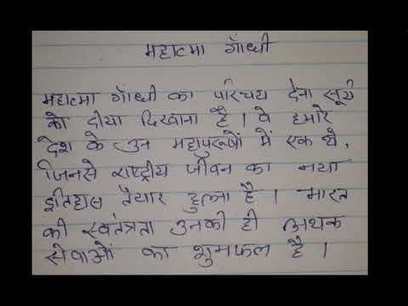 महात्मा गाँधी
महात्मा गाँधी का परिचय देना सूर्य
को दीया दिखाना है । वे हमारे
देश के उन महापुरूषों में एक थे,
जिनसे राष्ट्रीय जीवन का नया
इतिहास तैयार हुआ है । भारत
की स्वतंत्रता उनकी ही अथक
सेवाओं का शुभफल है ।